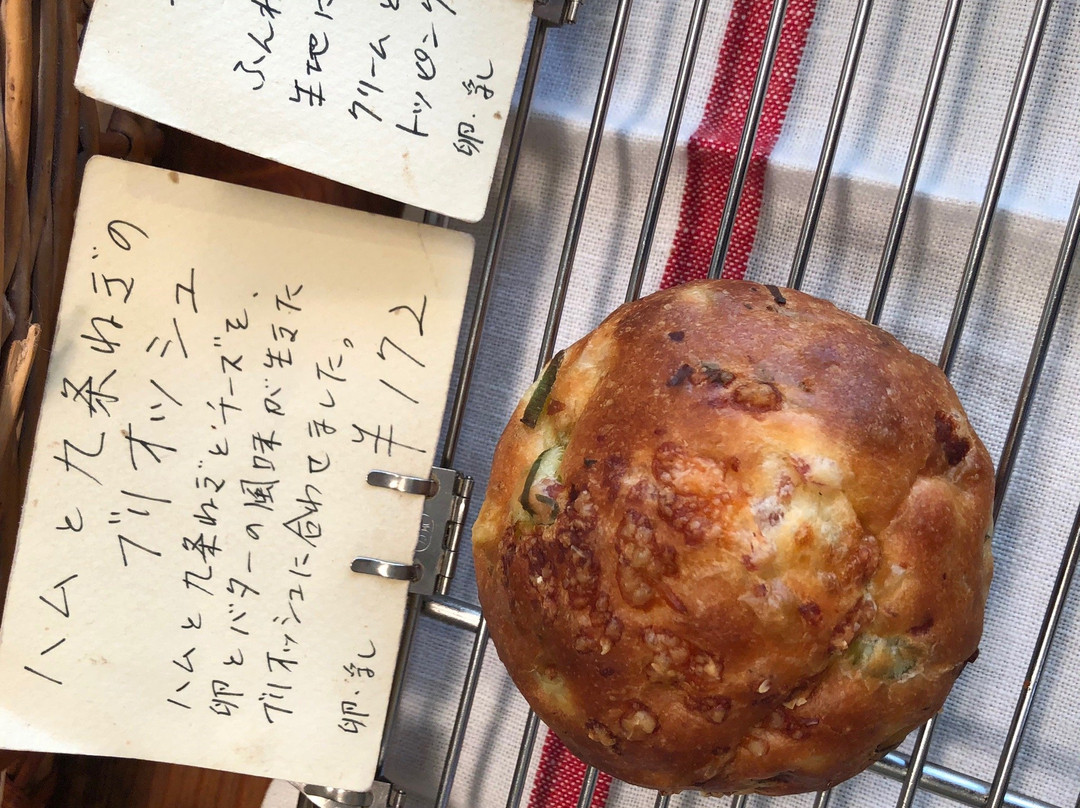 ふんわ
生地に
クリームと
トッピング
卵・乳
ハムと九条ねぎの
ブリオッシュ
ハムと九条ねぎとチーズを、
卵とバターの風味が生きた
ブリオッシュに合わせました。
¥172
卵・乳